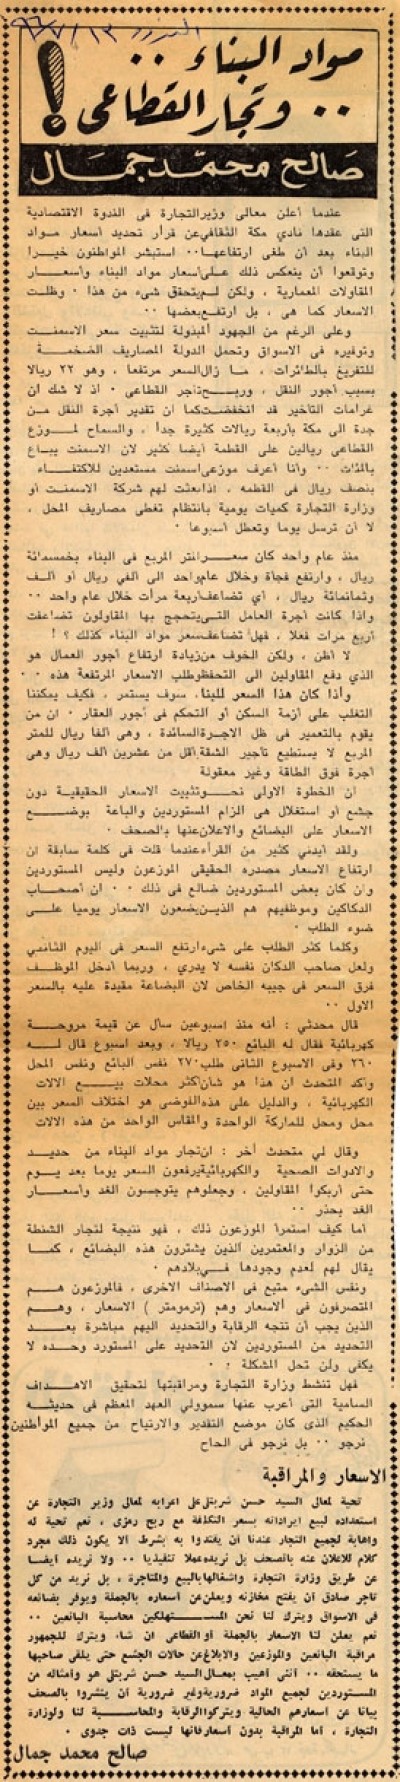 مواد البناء ..
.. وتجار القطاعى !
صالح محمد جمال
عندما أعلن معالى وزير التجارة فى الندوة الاقتصادية
التى عقدها نادي مكة الثقافي عن قرار تحديد أسعار مواد
البناء بعد أن طغى ارتفاعها .. استبشر المواطنون خيرا
وتوقعوا أن ينعكس ذلك على أسعار مواد البناء وأسعار
المقاولات المعمارية ، ولكن لم يتحقق شىء من هذا . وظلت
الاسعار كما هى ، بل ارتفع بعضها ..
وعلى الرغم من الجهود المبذولة لتثبيت سعر الاسمنت
وتوفيره فى الاسواق وتحمل الدولة المصاريف الضخمة
للتفريغ بالطائرات ، ما زال السعر مرتفعا ، وهو ٢٢ ريالا
بسبب أجور النقل ، وربح تاجر القطاعى . اذ لا شك ان
غرامات التأخير قد انخفضت كما ان تقدير أجرة النقل من
جدة الى مكة بأربعة ريالات كثيرة جدا ، والسماح لموزع
القطاعى ريالين على القطعة أيضا كثير لان الاسمنت يباع
بالذات .. وأنا أعرف موزعى اسمنت مستعدين للاكتفاء
بنصف ريال فى القطعه ، اذا بعثت لهم شركة الاسمنت أو
وزارة التجارة كميات يومية بانتظام تغطى مصاريف المحل ،
لا أن ترسل يوما وتعطل أسبوعا .
منذ عام واحد كان سعر المتر المربع فى البناء بخمسمائة
ريال ، وارتفع فجأة وخلال عام واحد الى ألفي ريال أو ألف
وثمانمائة ريال ، أي تضاعف أربعة مرات خلال عام واحد ..
واذا كانت أجرة العامل التى يتحجج بها المقاولون تضاعفت
أربع مرات فعلا ، فهل تضاعف سعر مواد البناء كذلك ؟ !
لا أظن ، ولكن الخوف من زيادة ارتفاع أجور العمال هو
الذي دفع المقاولين الى التحفظ وطلب الاسعار المرتفعة هذه ..
وأذا كان هذا السعر للبناء سوف يستمر ، فكيف يمكننا
التغلب على أزمة السكن أو التحكم فى أجور العقار . ان من
يقوم بالتعمير فى ظل الاجرة السائدة ، وهى ألفا ريال للمتر
المربع لا يستطيع تأجير الشقة أقل من عشرين ألف ريال وهى
أجرة فوق الطاقة وغير معقولة
ان الخطوة الاولى نحو تثبيت الاسعار الحقيقية دون
جشع أو استغلال هى الزام المستوردين والباعة بوضع
الاسعار على البضائع والاعلان عنها بالصحف .
ولقد أيدنى كثير من القراء عندما قلت فى كلمة سابقة ان
ارتفاع الاسعار مصدره الحقيقى الموزعون وليس المستوردين
وان كان بعض المستوردين ضالع فى ذلك .. ان أصحاب
الدكاكين وموظفيهم هم الذين يضعون الاسعار يوميا على
ضوء الطلب .
وكلما كثر الطلب على شىء ارتفع السعر فى اليوم الثانى
ولعل صاحب الدكان نفسه لا يدري ، وربما أدخل الموظف
فرق السعر فى جيبه الخاص لان البضاعة مقيدة عليه بالسعر
الاول ..
قال محدثي : أنه منذ اسبوعين سأل عن قيمة مروحة
كهربائية فقال له البائع ٢٥٠ ريالا ، وبعد اسبوع قال له
٢٦٠ وفى الاسبوع الثانى طلب ٢٧٠ نفس البائع ونفس المحل
وأكد المتحدث ان هذا هو شأن أكثر محلات بيع الالات
الكهربائية ، والدليل على هذه الفوضى هو اختلاف السعر بين
محل ومحل للماركة الواحدة والمقاس الواحد من هذه الالات
وقال لي متحدث آخر : ان تجار مواد البناء من حديد
والادوات الصحية والكهربائية يرفعون السعر يوما بعد يوم
حتى أربكوا المقاولين ، وجعلوهم يتوجسون الغد وأسعار
الغد بحذر ..
أما كيف استمرأ الموزعون ذلك ، فهو نتيجة لتجار الشنطة
من الزوار والمعتمرين الذين يشترون هذه البضائع ، كما
يقال لهم لعدم وجودها فى بلادهم .
ونفس الشىء متبع فى الاصناف الاخرى ، فالموزعون هم
المتصرفون فى الاسعار وهم ( ترمومتر ) الاسعار ، وهم
الذين يجب أن تتجه الرقابة والتحديد اليهم مباشرة بعد
التحديد من المستوردين لان التحديد على المستورد وحده لا
يكفى ولن تحل المشكلة ..
فهل تنشط وزارة التجارة ومراقبتها لتحقيق الاهداف
السامية التى أعرب عنها سمو ولي العهد المعظم فى حديثه
الحكيم الذى كان موضع التقدير والارتياح من جميع المواطنين
نرجو .. بل نرجو فى الحاح
الاسعار والمراقبة
تحية لمعال السيد حسن شربتلى على اعرابه لمعالى وزير التجارة عن
استعداده لبيع ايراداته بسعر التكلفة مع ربح رمزى ، نعم تحية له
واهابة لجميع التجار عندنا أن يقتدوا به بشرط ألا يكون ذلك مجرد
كلام للاعلان عنه بالصحف بل نريده عملا تنفيذيا .. ولا نريده أيضا
عن طريق وزارة التجارة واشغالها بالبيع والمتاجرة ، بل نريد من كل
تاجر صادق أن يفتح مخازنه ويعلن عن أسعاره بالجملة ويوفر بضائعه
فى الاسواق ويترك لنا نحن المستهلكين محاسبة البائعين ..
نعم يعلن لنا الاسعار بالجملة أو القطاعى ان شاء ويترك للجمهور
مراقبة البائعين والموزعين والابلاغ عن حالات الجشع حتى يلقى صاحبها
ما يستحقه .. أننى أهيب بمعال السيد حسن شربتلى هو وأمثاله من
المستوردين لجميع المواد ضرورية وغير ضرورية أن ينشروا بالصحف
بيانا عن أسعارهم الحالية ويتركوا الرقابة والمحاسبة لنا ولوزارة
التجارة ، أما المراقبة بدون أسعار فانها ليست ذات جدوى .
صالح محمد جمال